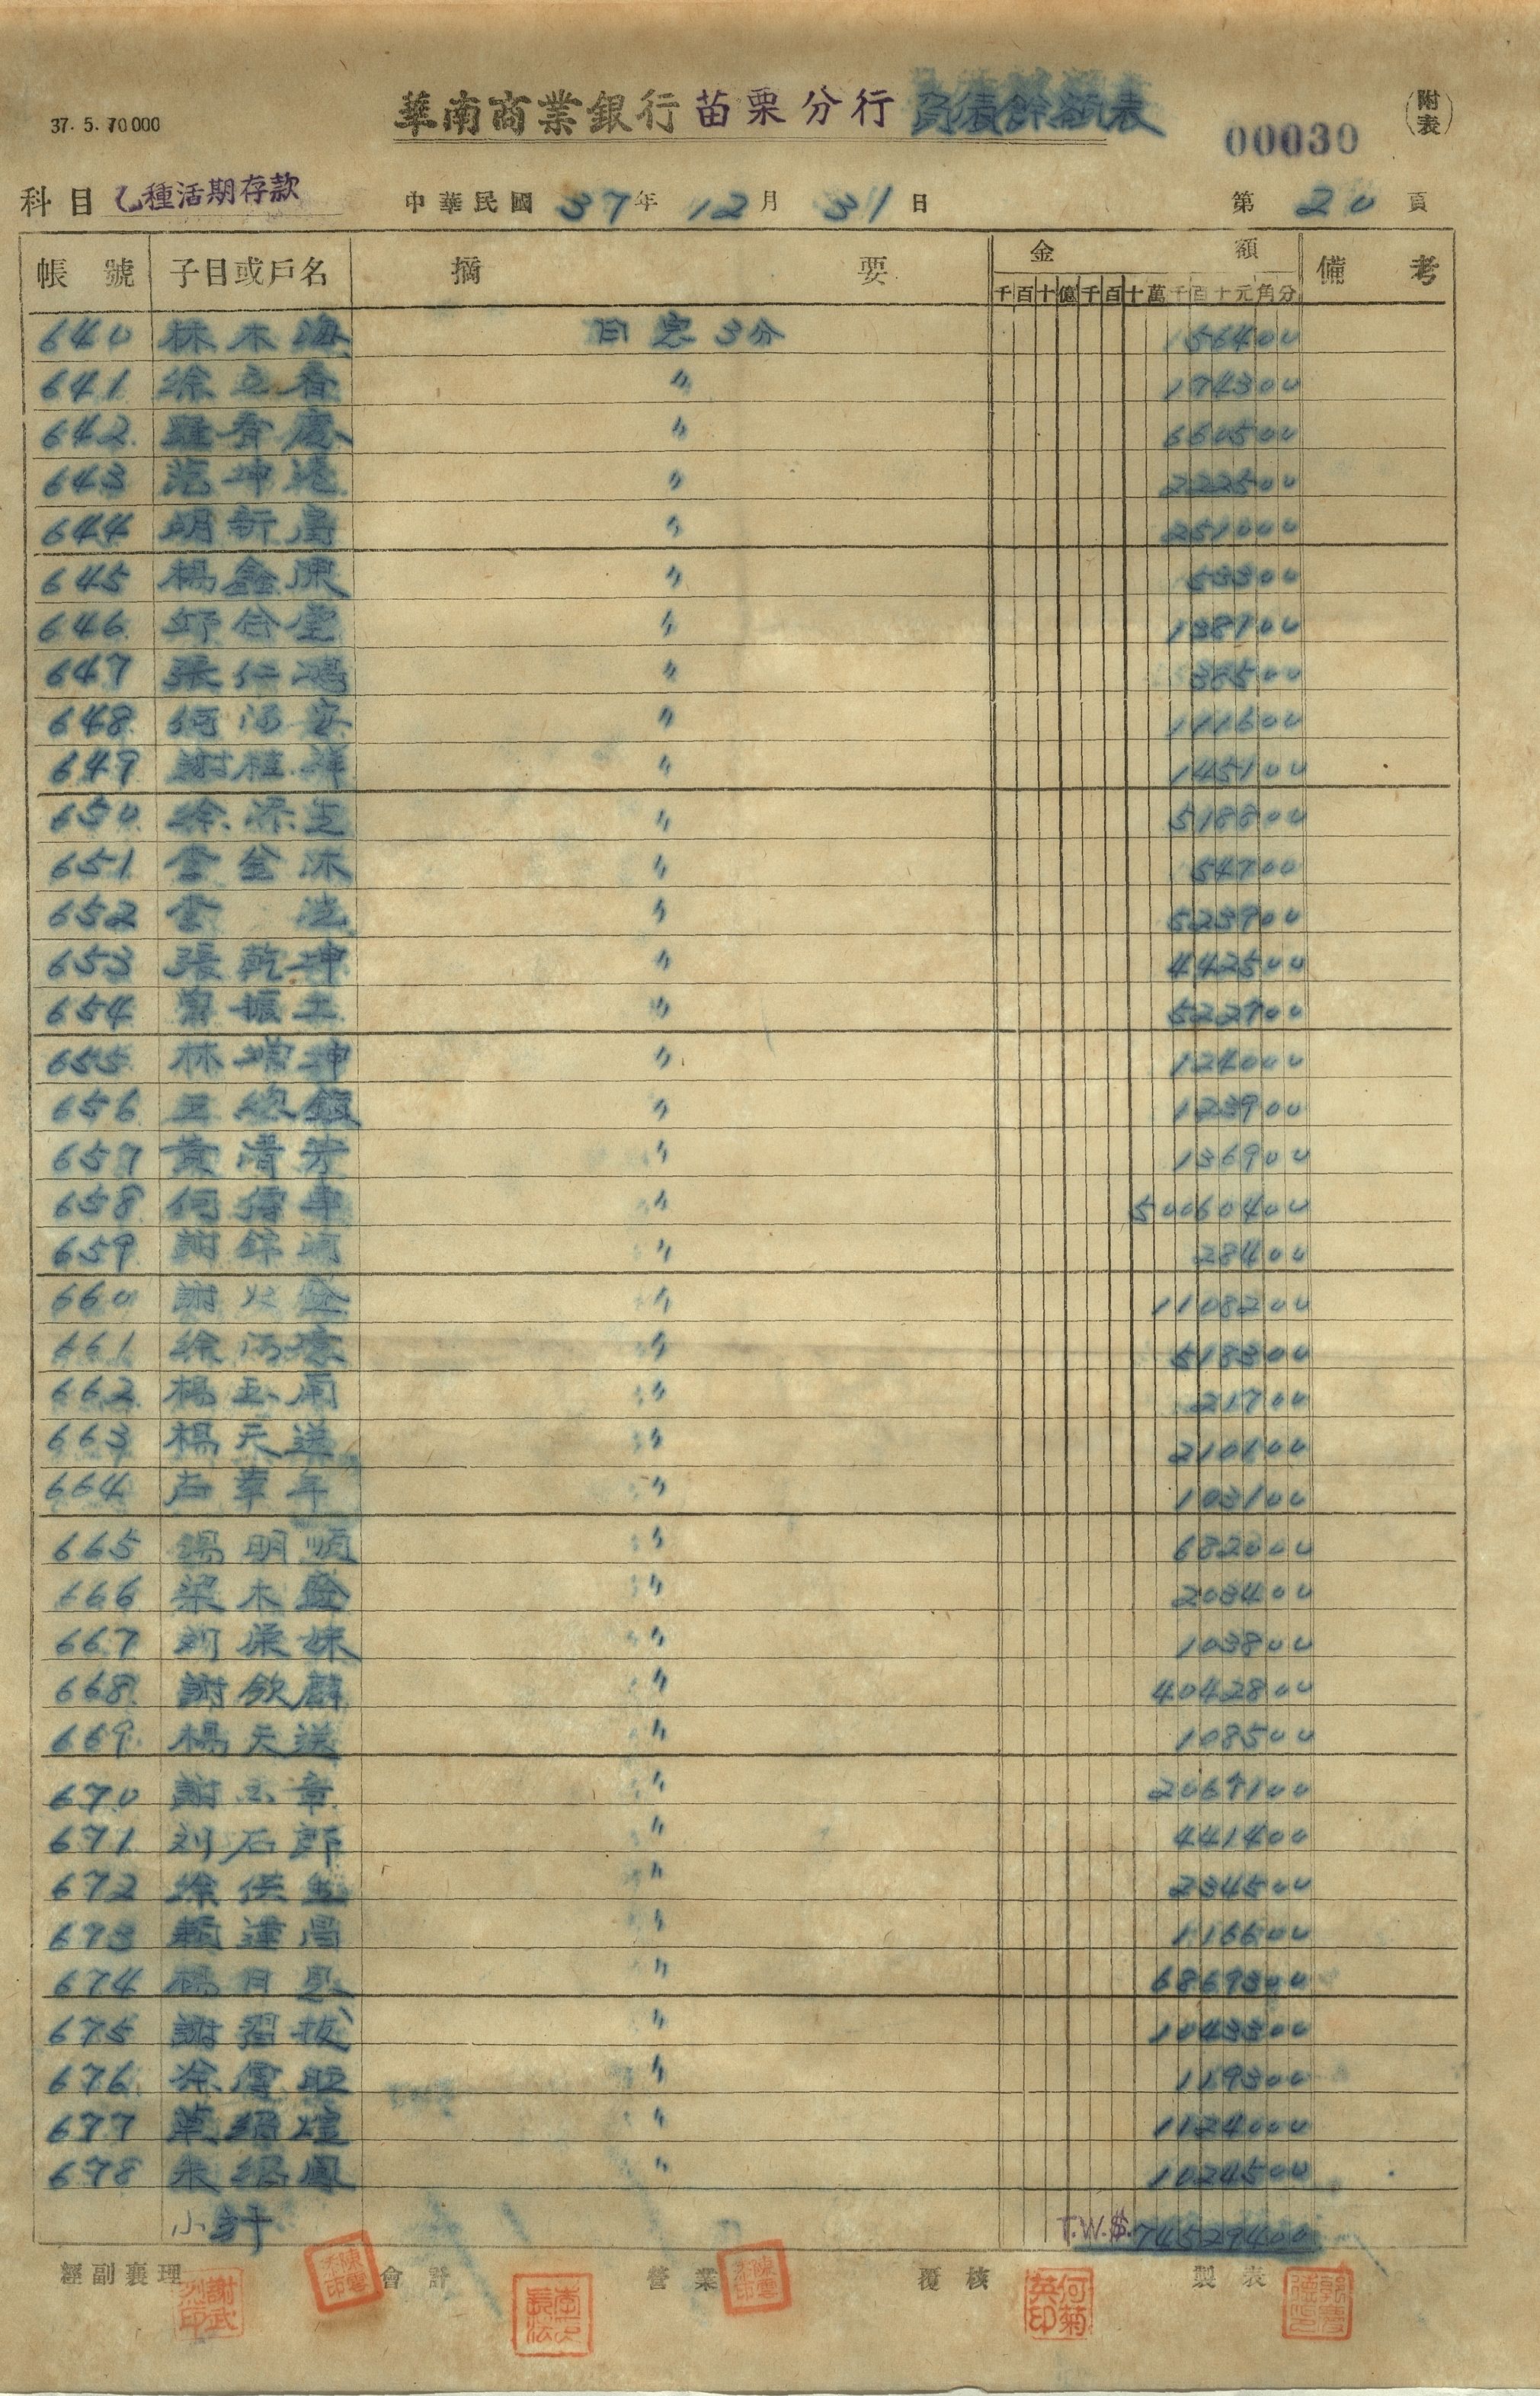 37. 5. 70000
華南商業銀行苗栗分行負債餘額表
00030
(附表)
科目 乙種活期存款 中華民國 37年 12月 31日 第 20 頁
帳號 子目或戶名 摘要 金額 備考
千百十億千百十萬千百十元角分
640 林木海 日息3分 156400
641 徐立香 〃 174300
642 羅香慶 〃 660500
643 范坤 〃 222500
644 明新 〃 251000
645 楊鑫 〃 53300
646 邱合堂 〃 138700
647 張仁鴻 〃 38500
648 何阿安 〃 111600
649 謝桂祥 〃 145100
650 徐添生 〃 518800
651 金 〃 54700
652 〃 523900
653 張乾坤 〃 442500
654 曾振土 〃 522700
655 林瑞坤 〃 124000
656 〃 123900
657 黃清芳 〃 136900
658 何 〃 50060400
659 謝錦 〃 28400
660 謝火金 〃 1108200
661 徐阿 〃 518300
662 楊玉蘭 〃 21700
663 楊天送 〃 210600
664 年 〃 103100
665 湯明順 〃 682000
666 梁木 〃 203400
667 刘 妹 〃 103800
668 謝欽 〃 4042800
669 楊天送 〃 108500
670 謝玉章 〃 2069100
671 刘石郎 〃 441400
672 徐 〃 234500
673 賴運昌 〃 116600
674 楊日 〃 6869300
675 謝 〃 1043300
676 徐 旺 〃 119300
677 葉紹煌 〃 1124000
678 朱紹鳳 〃 1024500
小計 T.W.$.74529400
經副襄理 會計 營業 覆核 製表
謝武 何菊英印